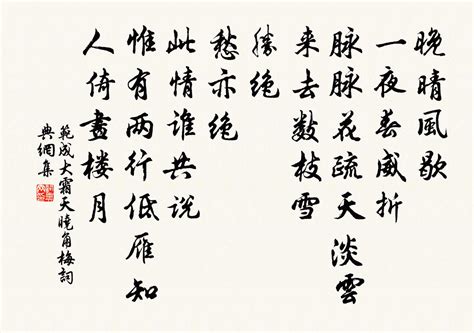 晚晴風歇
一夜春威折
脉脉花疏天淡雲
来去数枝雪
勝绝
愁亦绝
此情谁共说
惟有两行低雁知
人倚畫楼月
範成大霜天曉角梅詞
典網集